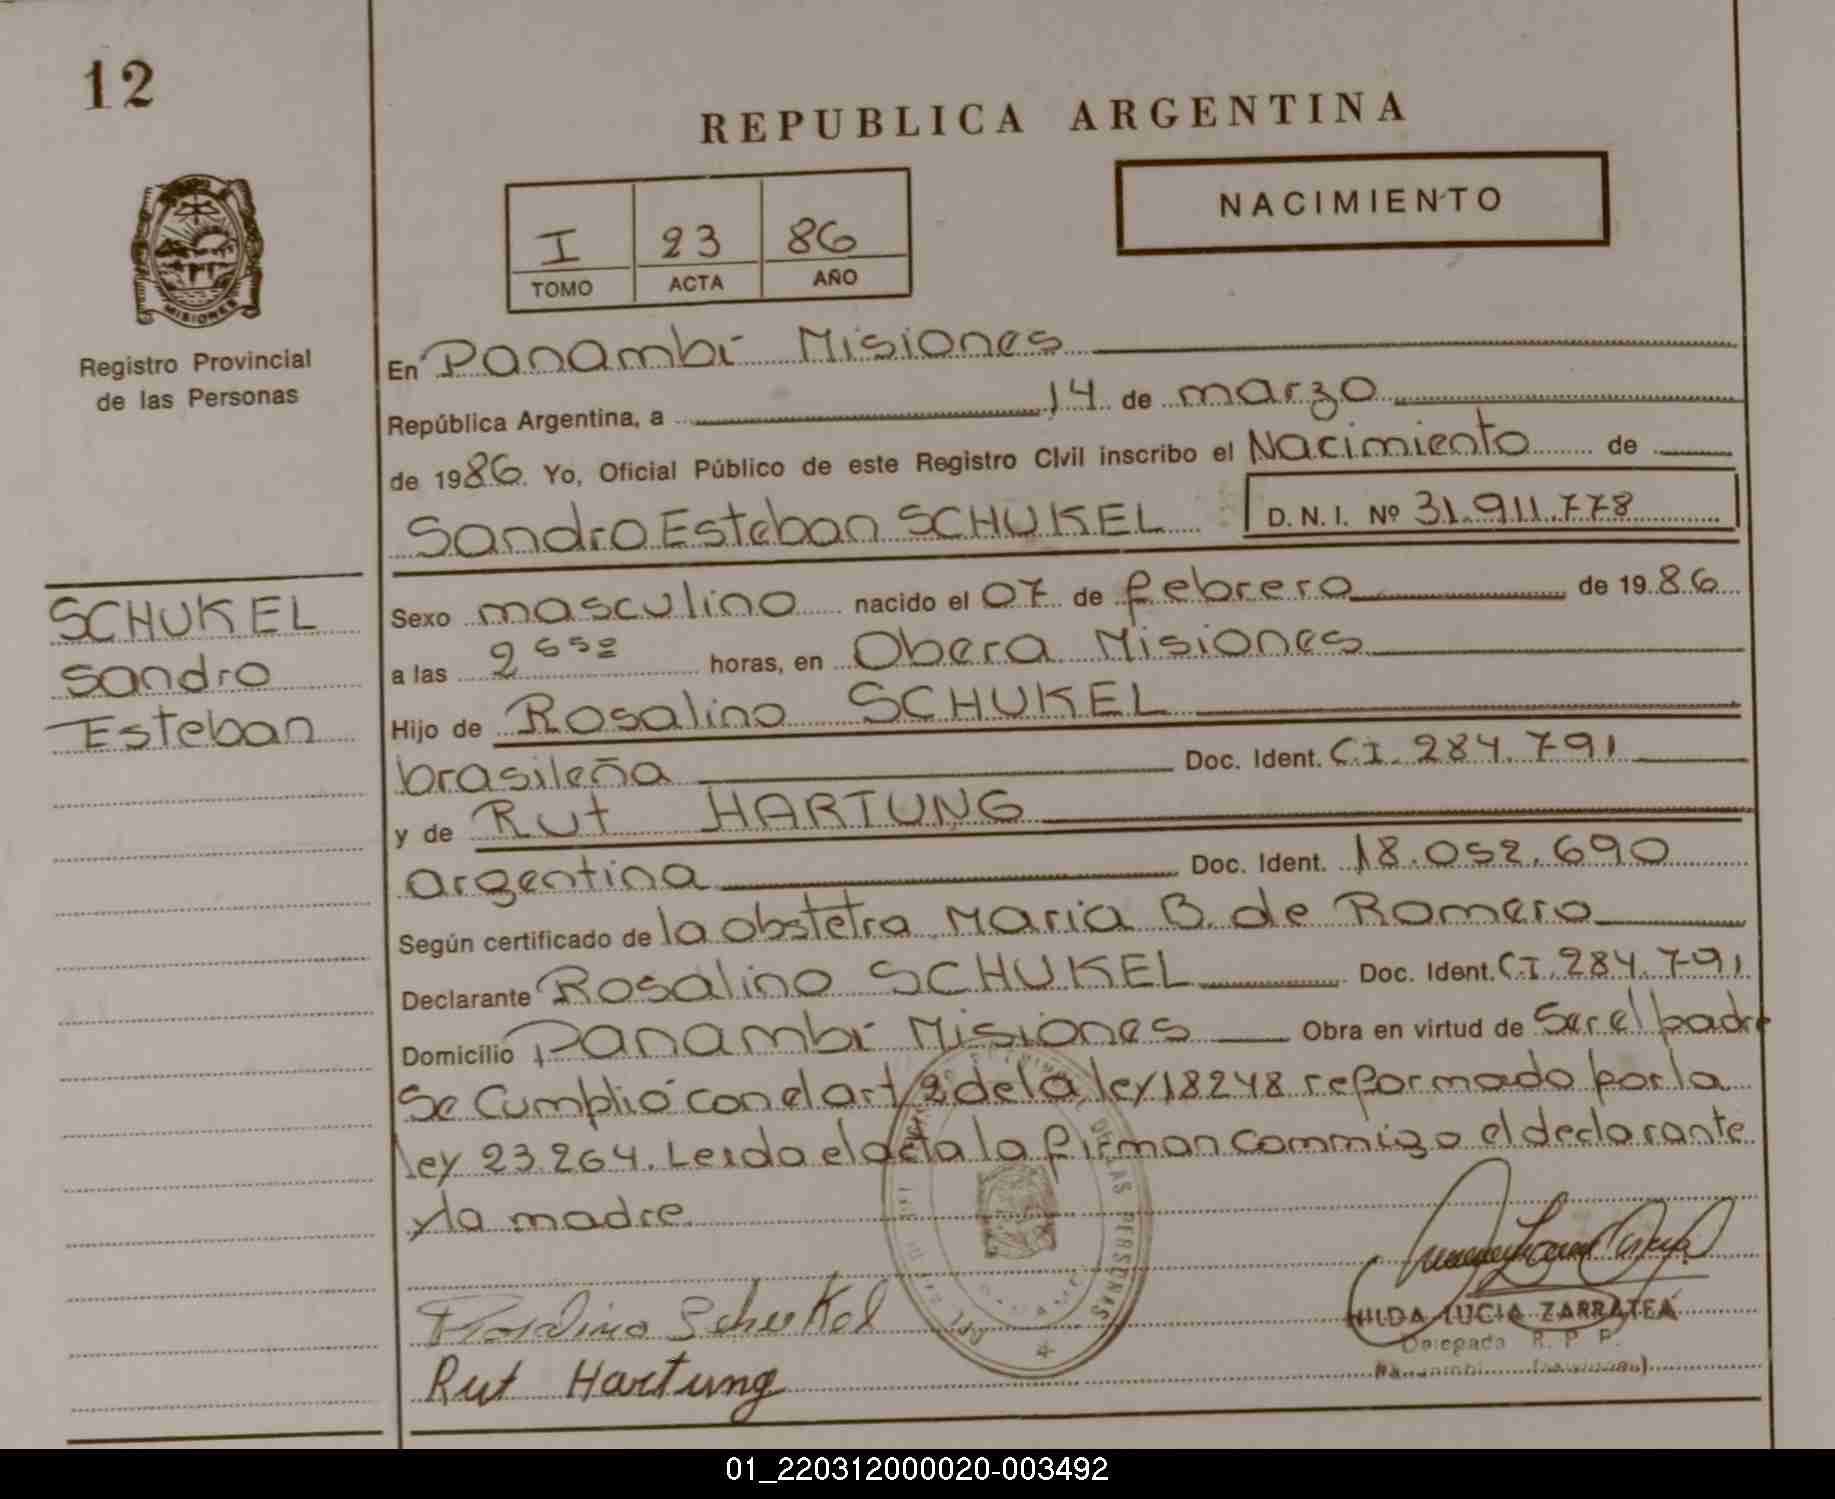 12
REPUBLICA ARGENTINA
NACIMIENTO
I 23 86
TOMO ACTA AÑO
MISIONES
Registro Provincial
de las Personas
En Panambí Misiones
República Argentina, a 14 de marzo
de 1986 Yo, Oficial Público de este Registro Civil inscribo el Nacimiento de
Sandro Esteban SCHUKEL D.N.I. Nº 31.911.778
SCHUKEL
Sandro
Esteban
Sexo masculino nacido el 07 de febrero de 1986
a las horas, en Obera Misiones
Hijo de Rosalino SCHUKEL
brasileña Doc. Ident. C.I. 284.791
y de Rut HARTUNG
argentina Doc. Ident. 18.052.690
Según certificado de la obstetra Maria B. de Romero
Declarante Rosalino SCHUKEL Doc. Ident. C.I. 284.791
Domicilio Panambí Misiones Obra en virtud de Ser el padre
Se Cumplió con el art 2 de la ley 18248 reformado por la
ley 23.264. Leida el acta la firman conmigo el declarante
y la madre
DE LAS PERSONAS
Rosalino Schukel
Rut Hartung
HILDA LUCIA ZARRATEA
Delegada R. P. P.
01_220312000020-003492